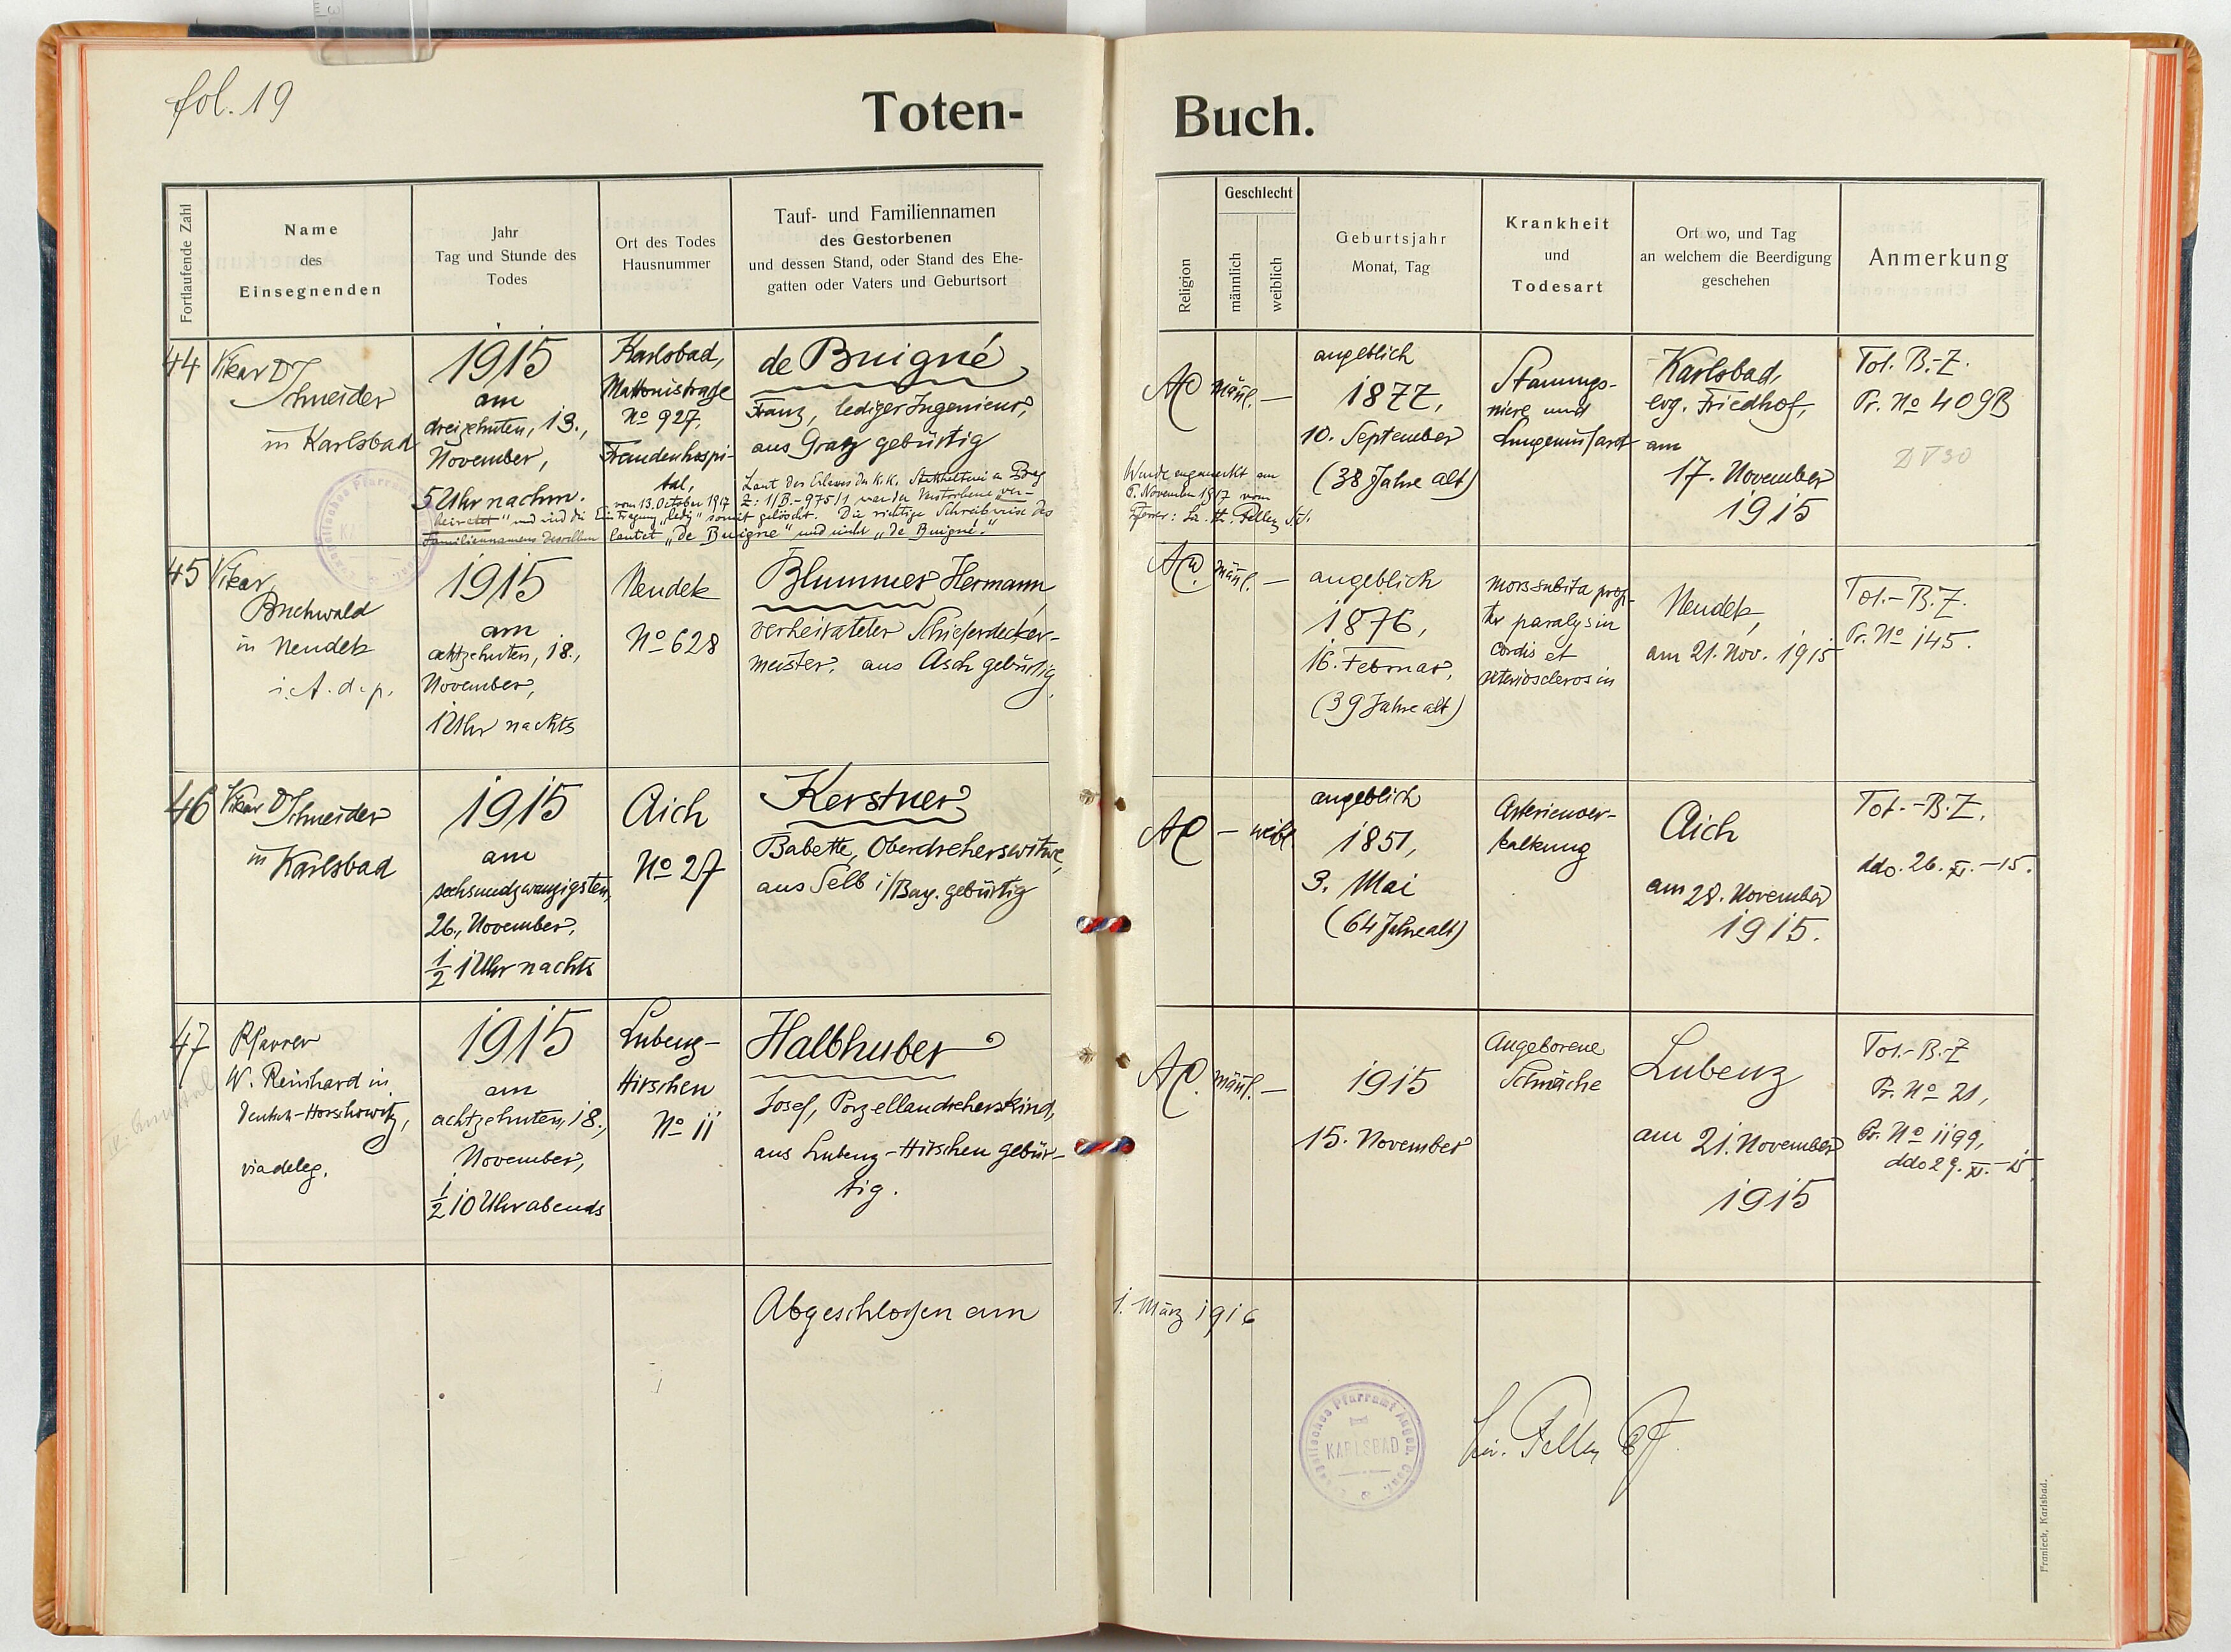 fol. 19
Toten-
Buch.
Fortlaufende Zahl
Name
des
Einsegnenden
Jahr
Tag und Stunde des
Todes
Ort des Todes
Hausnummer
Tauf- und Familiennamen
des Gestorbenen
und dessen Stand, oder Stand des Ehe-
gatten oder Vaters und Geburtsort
Religion
Geschlecht
männlich
weiblich
Geburtsjahr
Monat, Tag
Krankheit
und
Todesart
Ort wo, und Tag
an welchem die Beerdigung
geschehen
Anmerkung
44
Vikar D
Schneider
in Karlsbad
1915
am
dreizehnten, 13.,
November,
5 Uhr nachm.
Karlsbad,
Mattonistraße
No 927,
Fremdenhospi-
tal,
de Buigné
Franz, lediger Ingenieur,
aus Graz gebürtig
Laut des Erlasses der K.K. Statthalterei in Prag
vom 13. October 1917 Z: 1/B.-975/1 war der Verstorbene „ver-
heiratet" und wird die Eintragung „ledig" somit gelöscht. Die richtige Schreibweise des
Familiennamens desselben lautet „de Buigne" und nicht „de Buigné."
AC
männl.
—
angeblich
1877,
10. September
(38 Jahre alt)
Wurde angemerkt am
6. November 1917 vom
Pfarrer:
Stauungs-
niere und
Lungeninfarct
Karlsbad,
evg. Friedhof,
am
17. November
1915
Tot. B.-Z.
Pr. No 409B
D V 30
45
Vikar
Buchwald
in Neudek
i. A. d. p.
1915
am
achtzehnten, 18.,
November,
1 Uhr nachts
Neudek
No 628
Blummer Hermann,
verheirateter Schieferdecker-
meister, aus Asch gebürtig.
AC.
männl.
—
angeblich
1876,
16. Februar,
(39 Jahre alt)
mors subita prop-
ter paralysin
cordis et
arteriosclerosin
Neudek,
am 21. Nov. 1915
Tot.-B.Z.
Pr. No 145.
46
Vikar D Schneider
in Karlsbad
1915
am
sechsundzwanzigsten,
26., November,
1/2 1 Uhr nachts
Aich
No 27
Kerstner
Babette, Oberdreherswitwe,
aus Selb i/Bay. gebürtig
AC
—
weibl.
angeblich
1851,
3. Mai
(64 Jahre alt)
Arterienver-
kalkung
Aich
am 28. November
1915.
Tot.-B.Z.
ddo. 26. XI.-15.
47
Pfarrer
W. Reinhard in
Deutsch-Horschowitz,
via deleg.
1915
am
achtzehnten, 18.,
November,
1/2 10 Uhr abends
Lubenz-
Hirschen
No 11
Halbhuber
Josef, Porzellandreherskind,
aus Lubenz-Hirschen gebür-
tig.
AC.
männl.
—
1915
15. November
Angeborene
Schwäche
Lubenz
am 21. November
1915
Tot.-B.-Z
Pr. No 21,
Pr. No 1199,
ddo 29. XI.-15
Abgeschloßen am
1. März 1916
Evangelisches Pfarramt Augsb. Conf.
KARLSBAD
Franieck, Karlsbad.